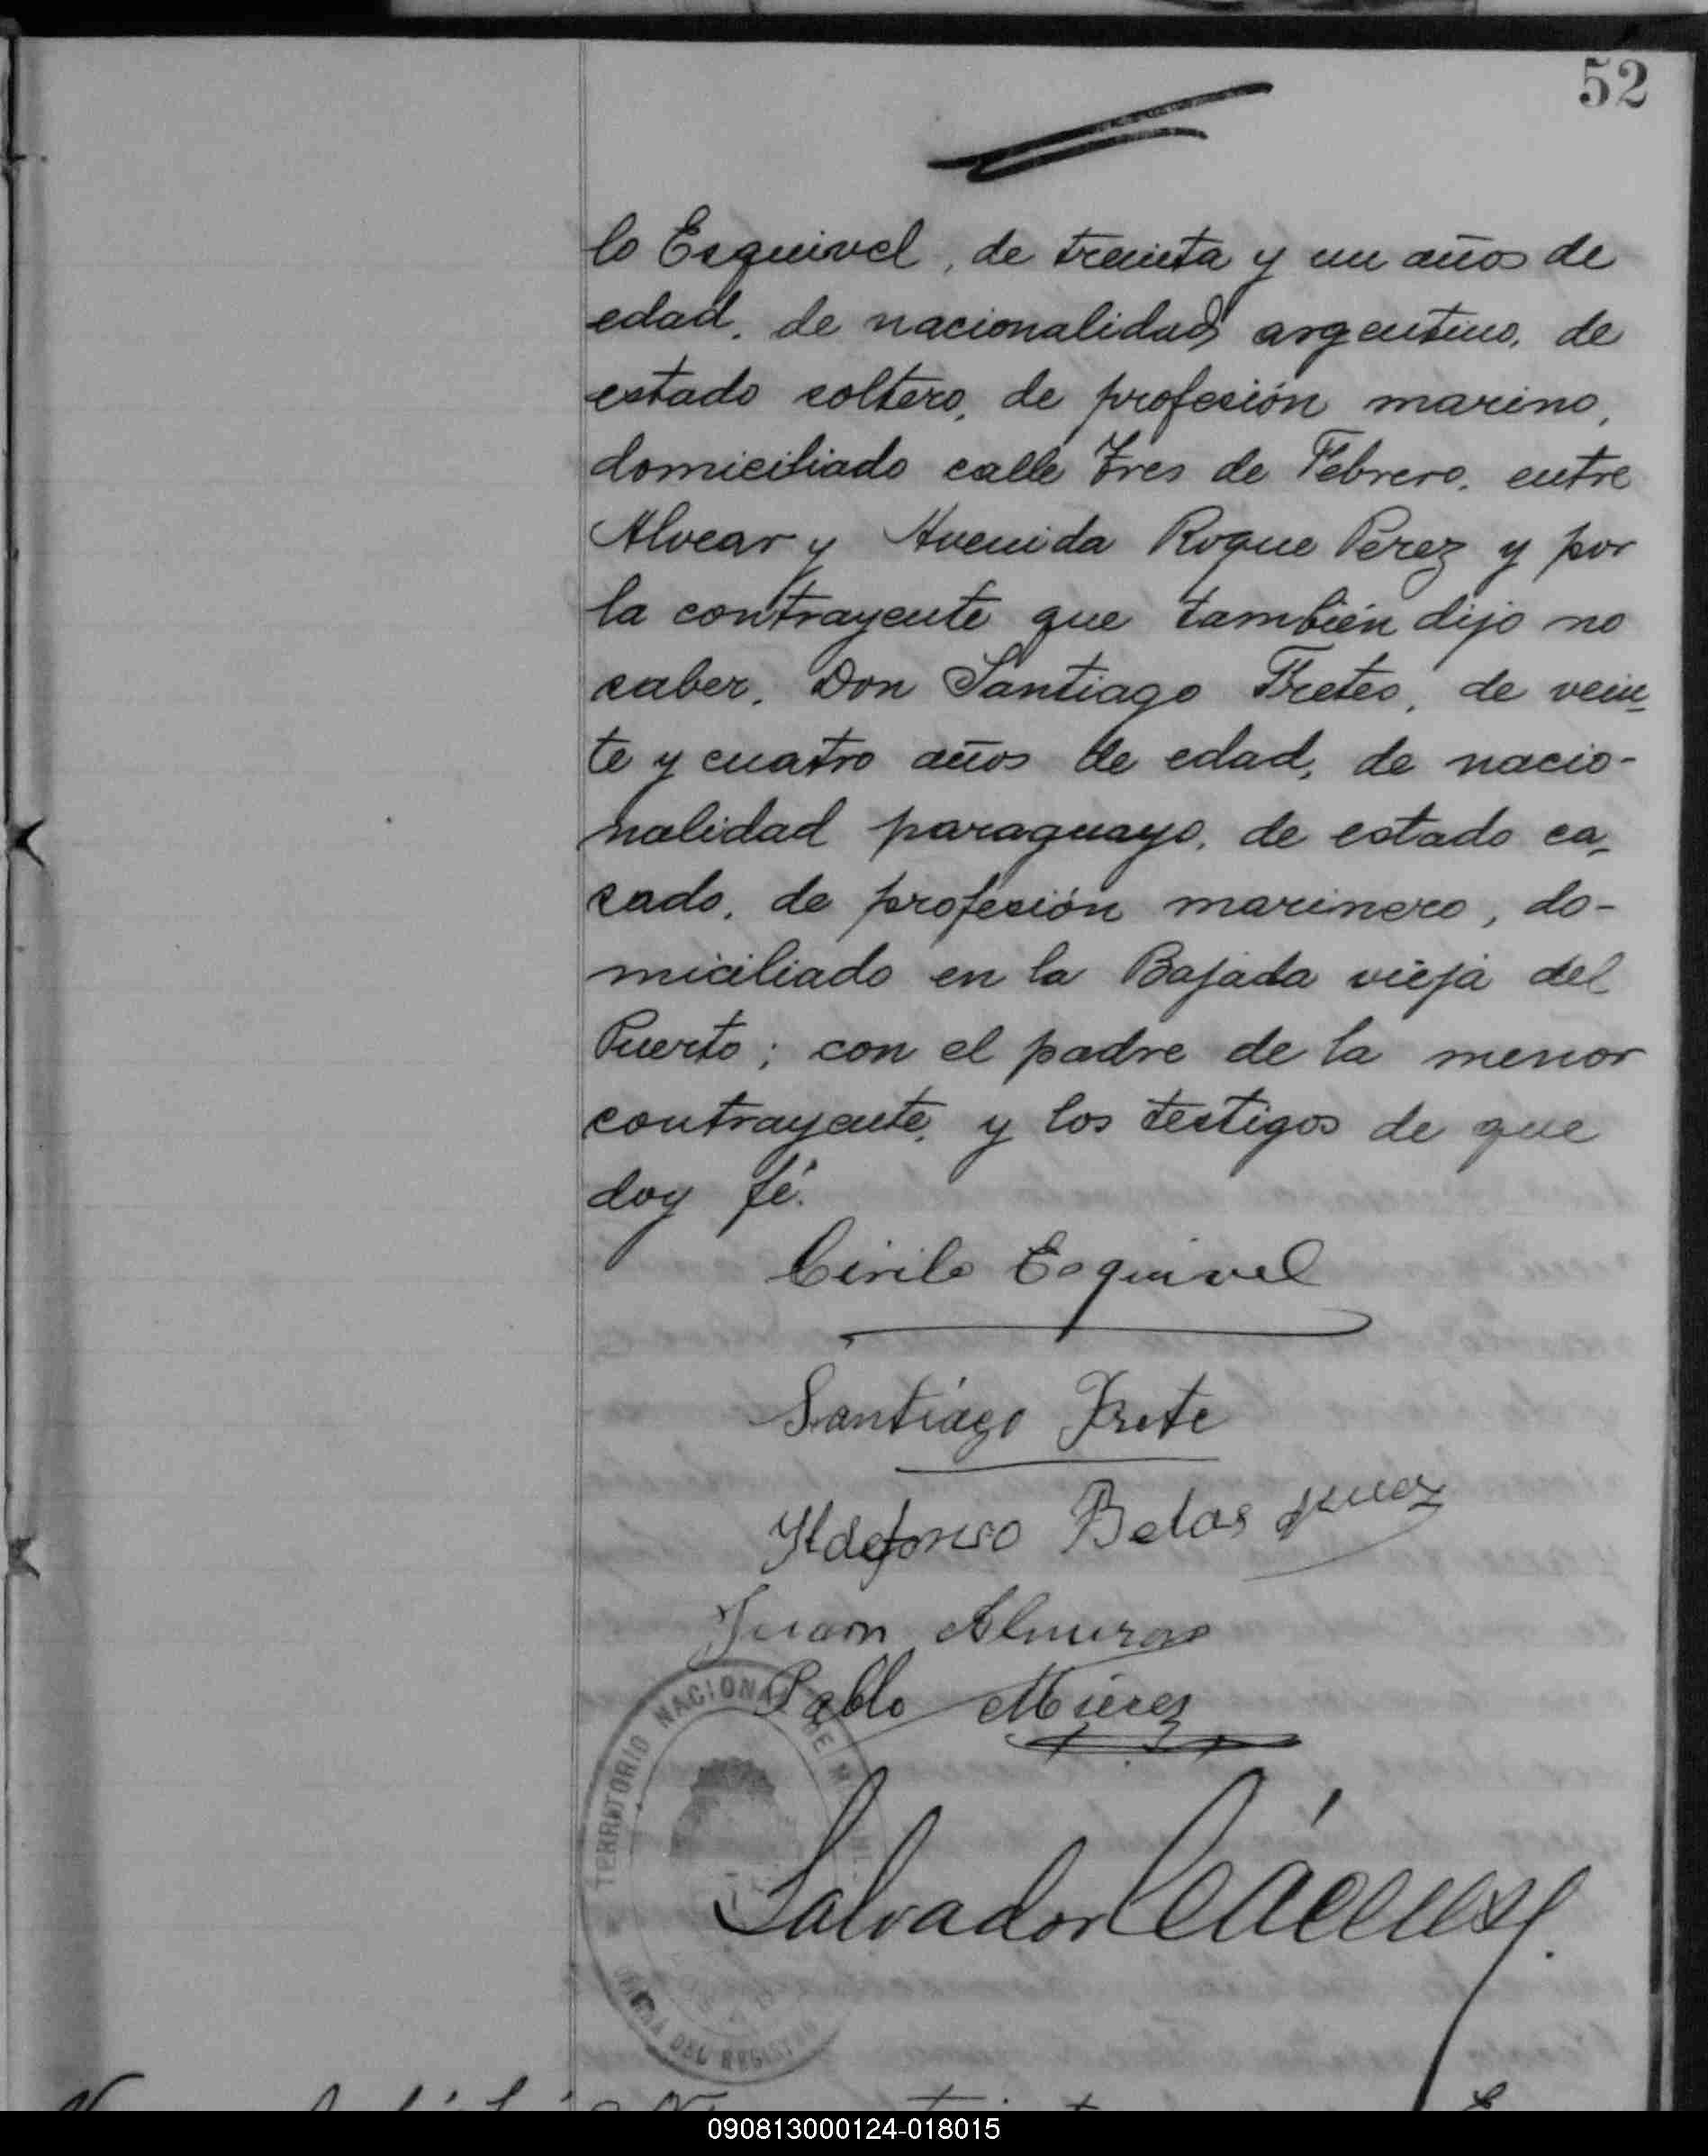 52
lo Esquivel, de treinta y un años de
edad, de nacionalidad argentino, de
estado soltero, de profesión marino,
domiciliado calle Tres de Febrero, entre
Alvear y Avenida Roque Perez y por
la contrayente que también dijo no
saber, Don Santiago Fretes, de vein-
te y cuatro años de edad, de nacio-
nalidad paraguayo, de estado ca-
sado, de profesión marinero, do-
miciliado en la Bajada vieja del
Puerto; con el padre de la menor
contrayente, y los testigos de que
doy fé.
Cirilo Esquivel
Santiago Frete
Ildefonso Belasquez
Juan
Pablo Mierez
TERRITORIO NACIONAL DE
Salvador Cáceres
DEL REGISTRO
090813000124-018015